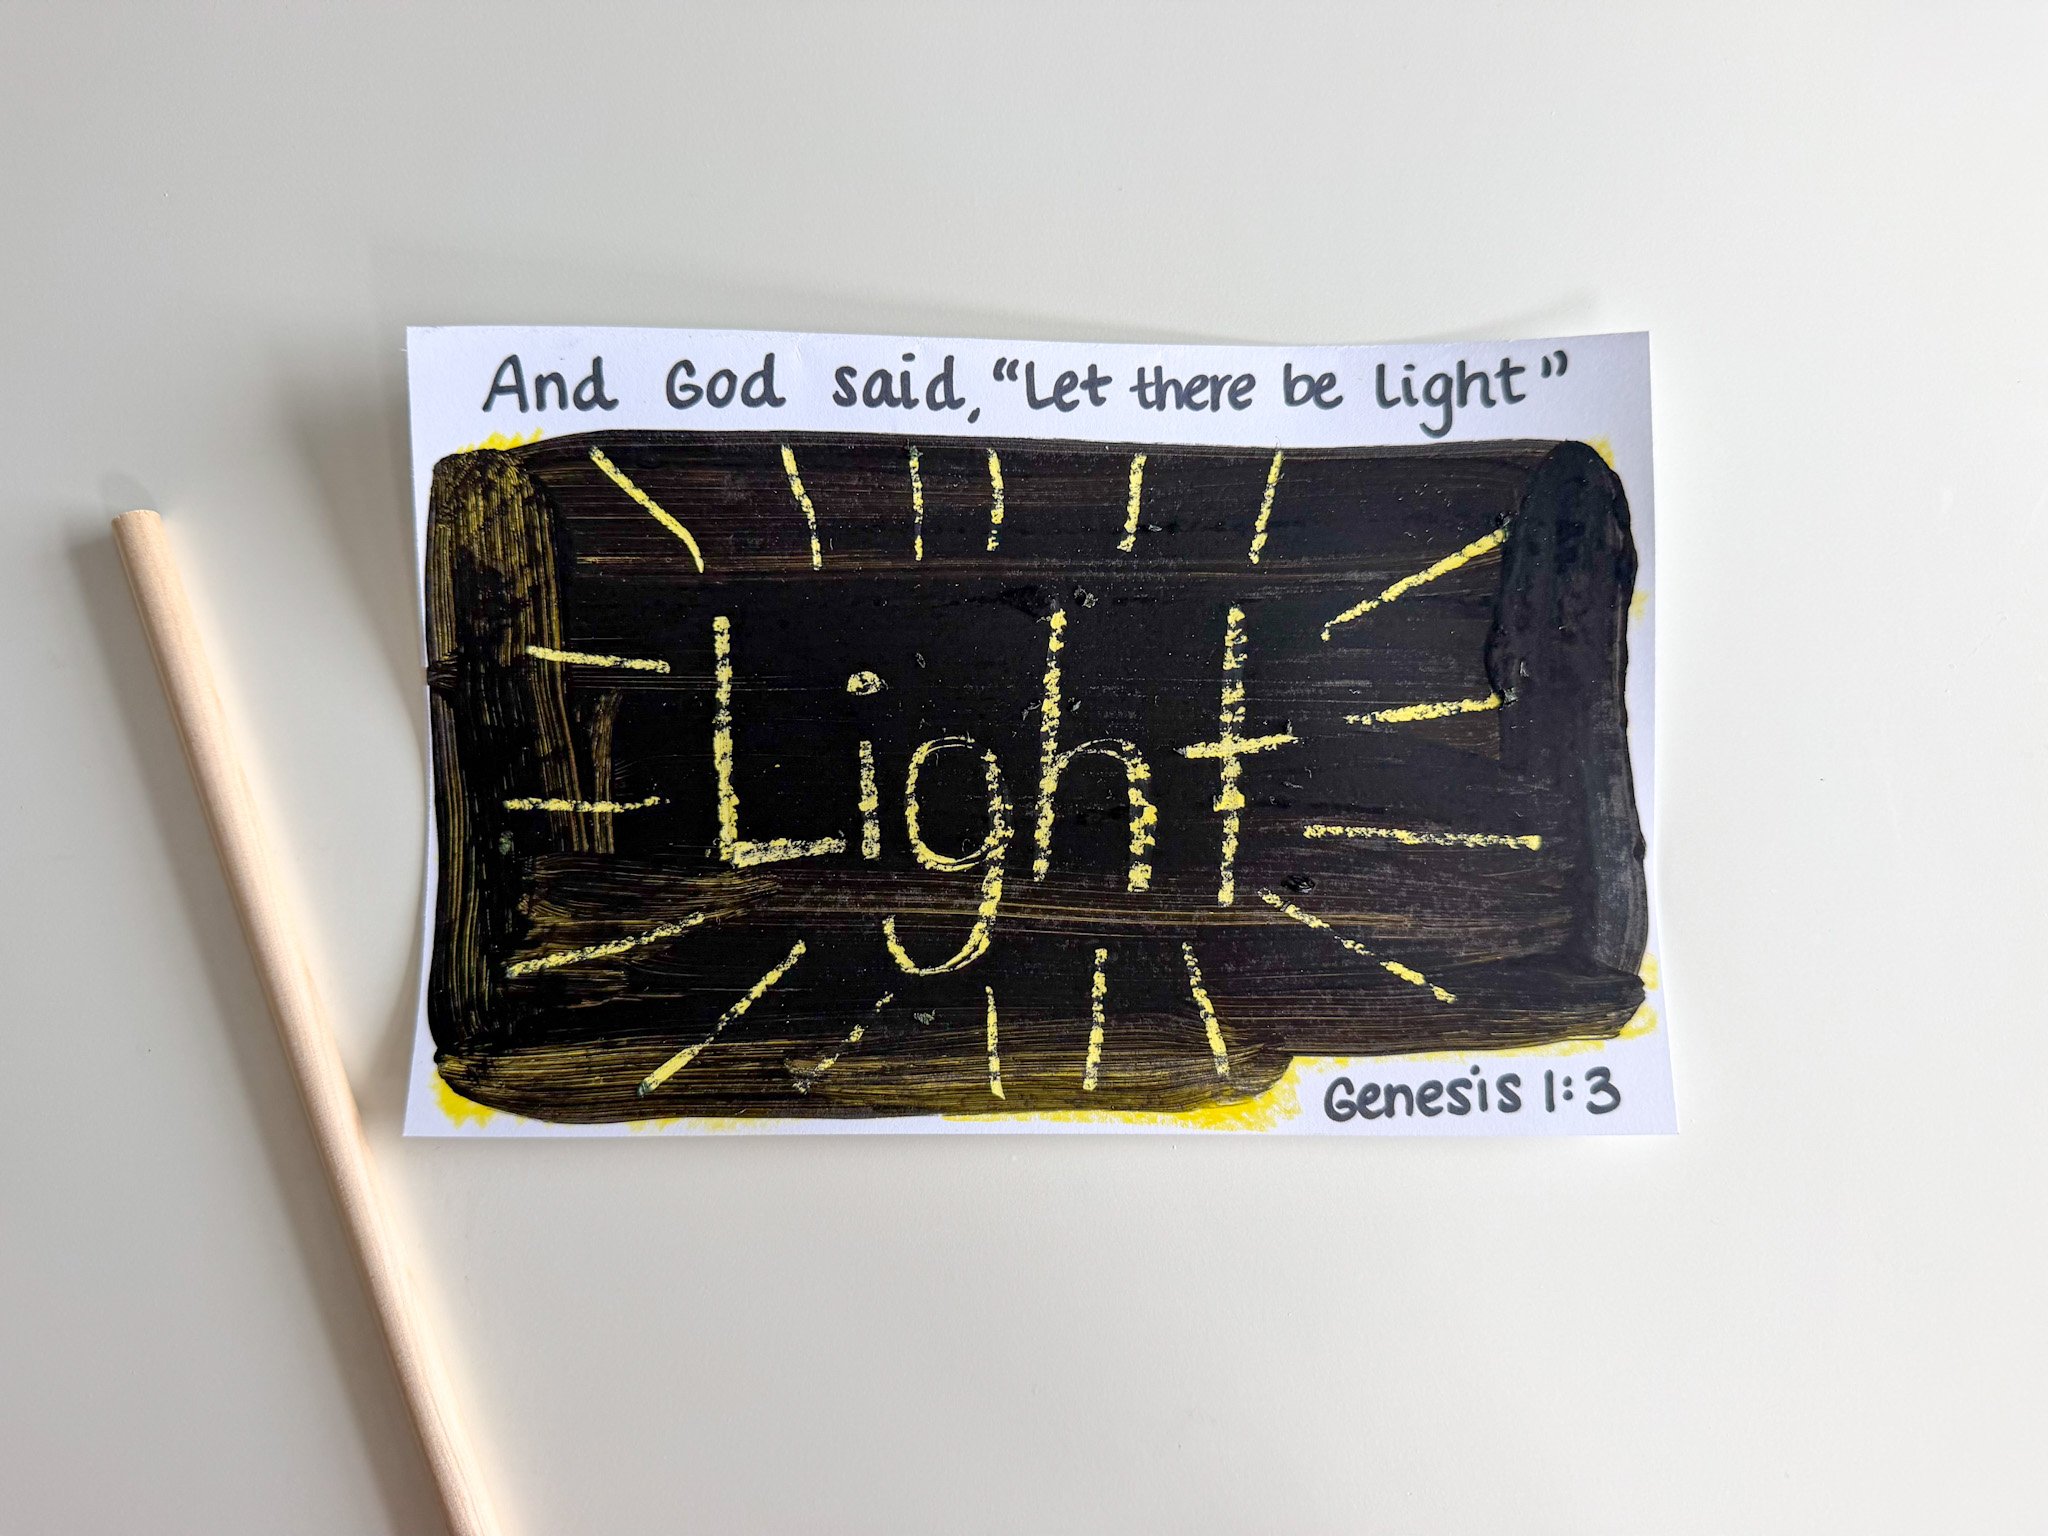 And God said, “Let there be light”
Light
Genesis 1:3